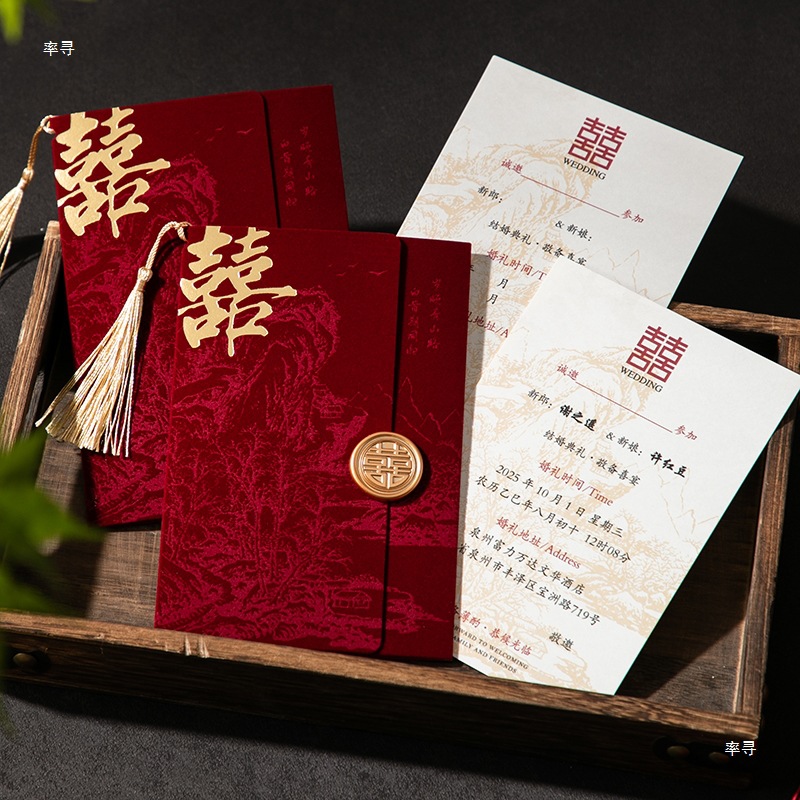 率寻
囍
囍
囍
囍
WEDDING
诚邀
参加
新郎:
& 新娘:
结婚典礼·敬备喜宴
婚礼时间/T
月
月
礼地址/A
囍
WEDDING
诚邀
参加
新郎: 谢之遥 & 新娘: 许红豆
结婚典礼·敬备喜宴
婚礼时间/Time
2025 年 10 月 1 日 星期三
农历乙巳年八月初十 12时08分
婚礼地址/Address
泉州富力万达文华酒店
省泉州市丰泽区宝洲路719号
薄酌·恭候光临
敬邀
WARD TO WELCOMING
FAMILY AND FRIENDS
率寻